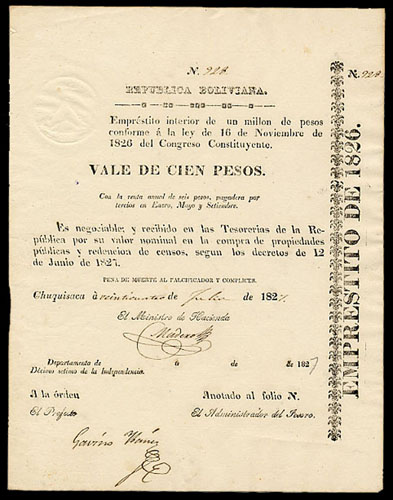 N. 928.
N. 928.
REPUBLICA BOLIVIANA.
Empréstito interior de un millon de pesos
conforme á la ley de 16 de Noviembre de
1826 del Congreso Constituyente.
VALE DE CIEN PESOS.
Con la renta anual de seis pesos, pagadera por
tercios en Enero, Mayo y Setiembre.
Es negociable; y recibido en las Tesorerias de la Re-
pública por su valor nominal en la compra de propiedades
públicas y redencion de censos, segun los decretos de 12
de Junio de 1827.
PENA DE MUERTE AL FALCIFICADOR Y COMPLICES.
Chuquisaca à veinticuatro de Julio de 1827.
El Ministro de Hacienda
Madero
Departamento de á de de 1827
Décimo setimo de la Independencia.
A la órden
Anotado al folio N.
El Prefecto
El Administrador del Tesoro.
Gavino Ibañez
EMPRESTITO DE 1826.